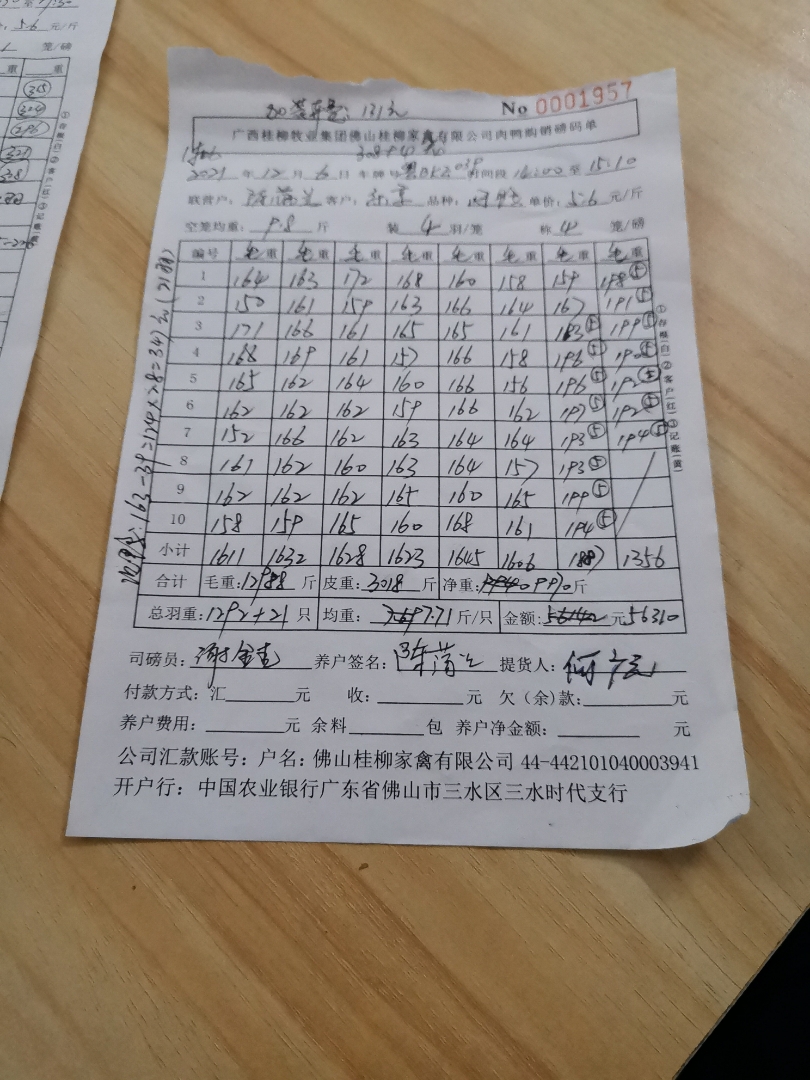 加装车费：131元
No 0001957
广西桂柳牧业集团佛山桂柳家禽有限公司肉鸭购销磅码单
308+4
2021 年 12 月 6 日 车牌号 时间段 至 15:10
联营户： 客户： 品种： 单价：5.6 元/斤
空笼均重：9.8 斤 装 4 羽/笼 称 4 笼/磅
编号 毛重 毛重 毛重 毛重 毛重 毛重 毛重 毛重
1 164 163 172 168 160 158 159 198⑤
2 150 161 159 163 166 164 167 191⑤
3 171 166 161 165 165 161 193⑤ 199⑤
4 168 169 161 157 166 158 196⑤ 190⑤
5 165 162 164 160 166 156 196⑤ 192⑤
6 162 162 162 159 166 162 197⑤ 192⑤
7 152 166 162 163 164 164 193⑤ 194⑤
8 161 162 160 163 164 157 193⑤
9 162 162 162 165 160 165 199⑤
10 158 159 165 160 168 161 194⑤
小计 1611 1632 1628 1623 1645 1606 1887 1356
合计 毛重：12988 斤 皮重：3018 斤 净重：9970斤
总羽重：1292+21 只 均重：7.71 斤/只 金额：元56310
司磅员： 养户签名：陈 提货人：何
付款方式：汇 元 收： 元 欠（余）款： 元
养户费用： 元 余料 包 养户净金额： 元
公司汇款账号：户名：佛山桂柳家禽有限公司 44-442101040003941
开户行：中国农业银行广东省佛山市三水区三水时代支行
①存根（白）②客户（红）③记账（黄）
163-39=124×2.8=347元（21羽）
5.6 元/斤
笼/磅
重 重
①存根（白）②客户（红）③记账（黄）